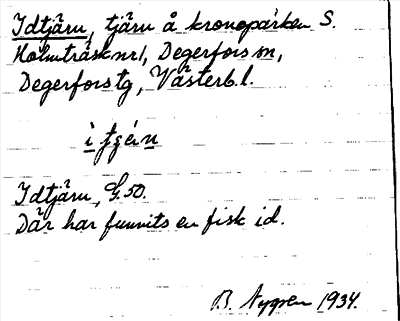 Idtjärn, tjärn å kronoparken S.
Holmträsk nr 1, Degerfors sn,
Degerfors tg, Västerb. l.
Idtjärn, G.50.
Där har funnits en fisk id.
B. Nygren 1934.